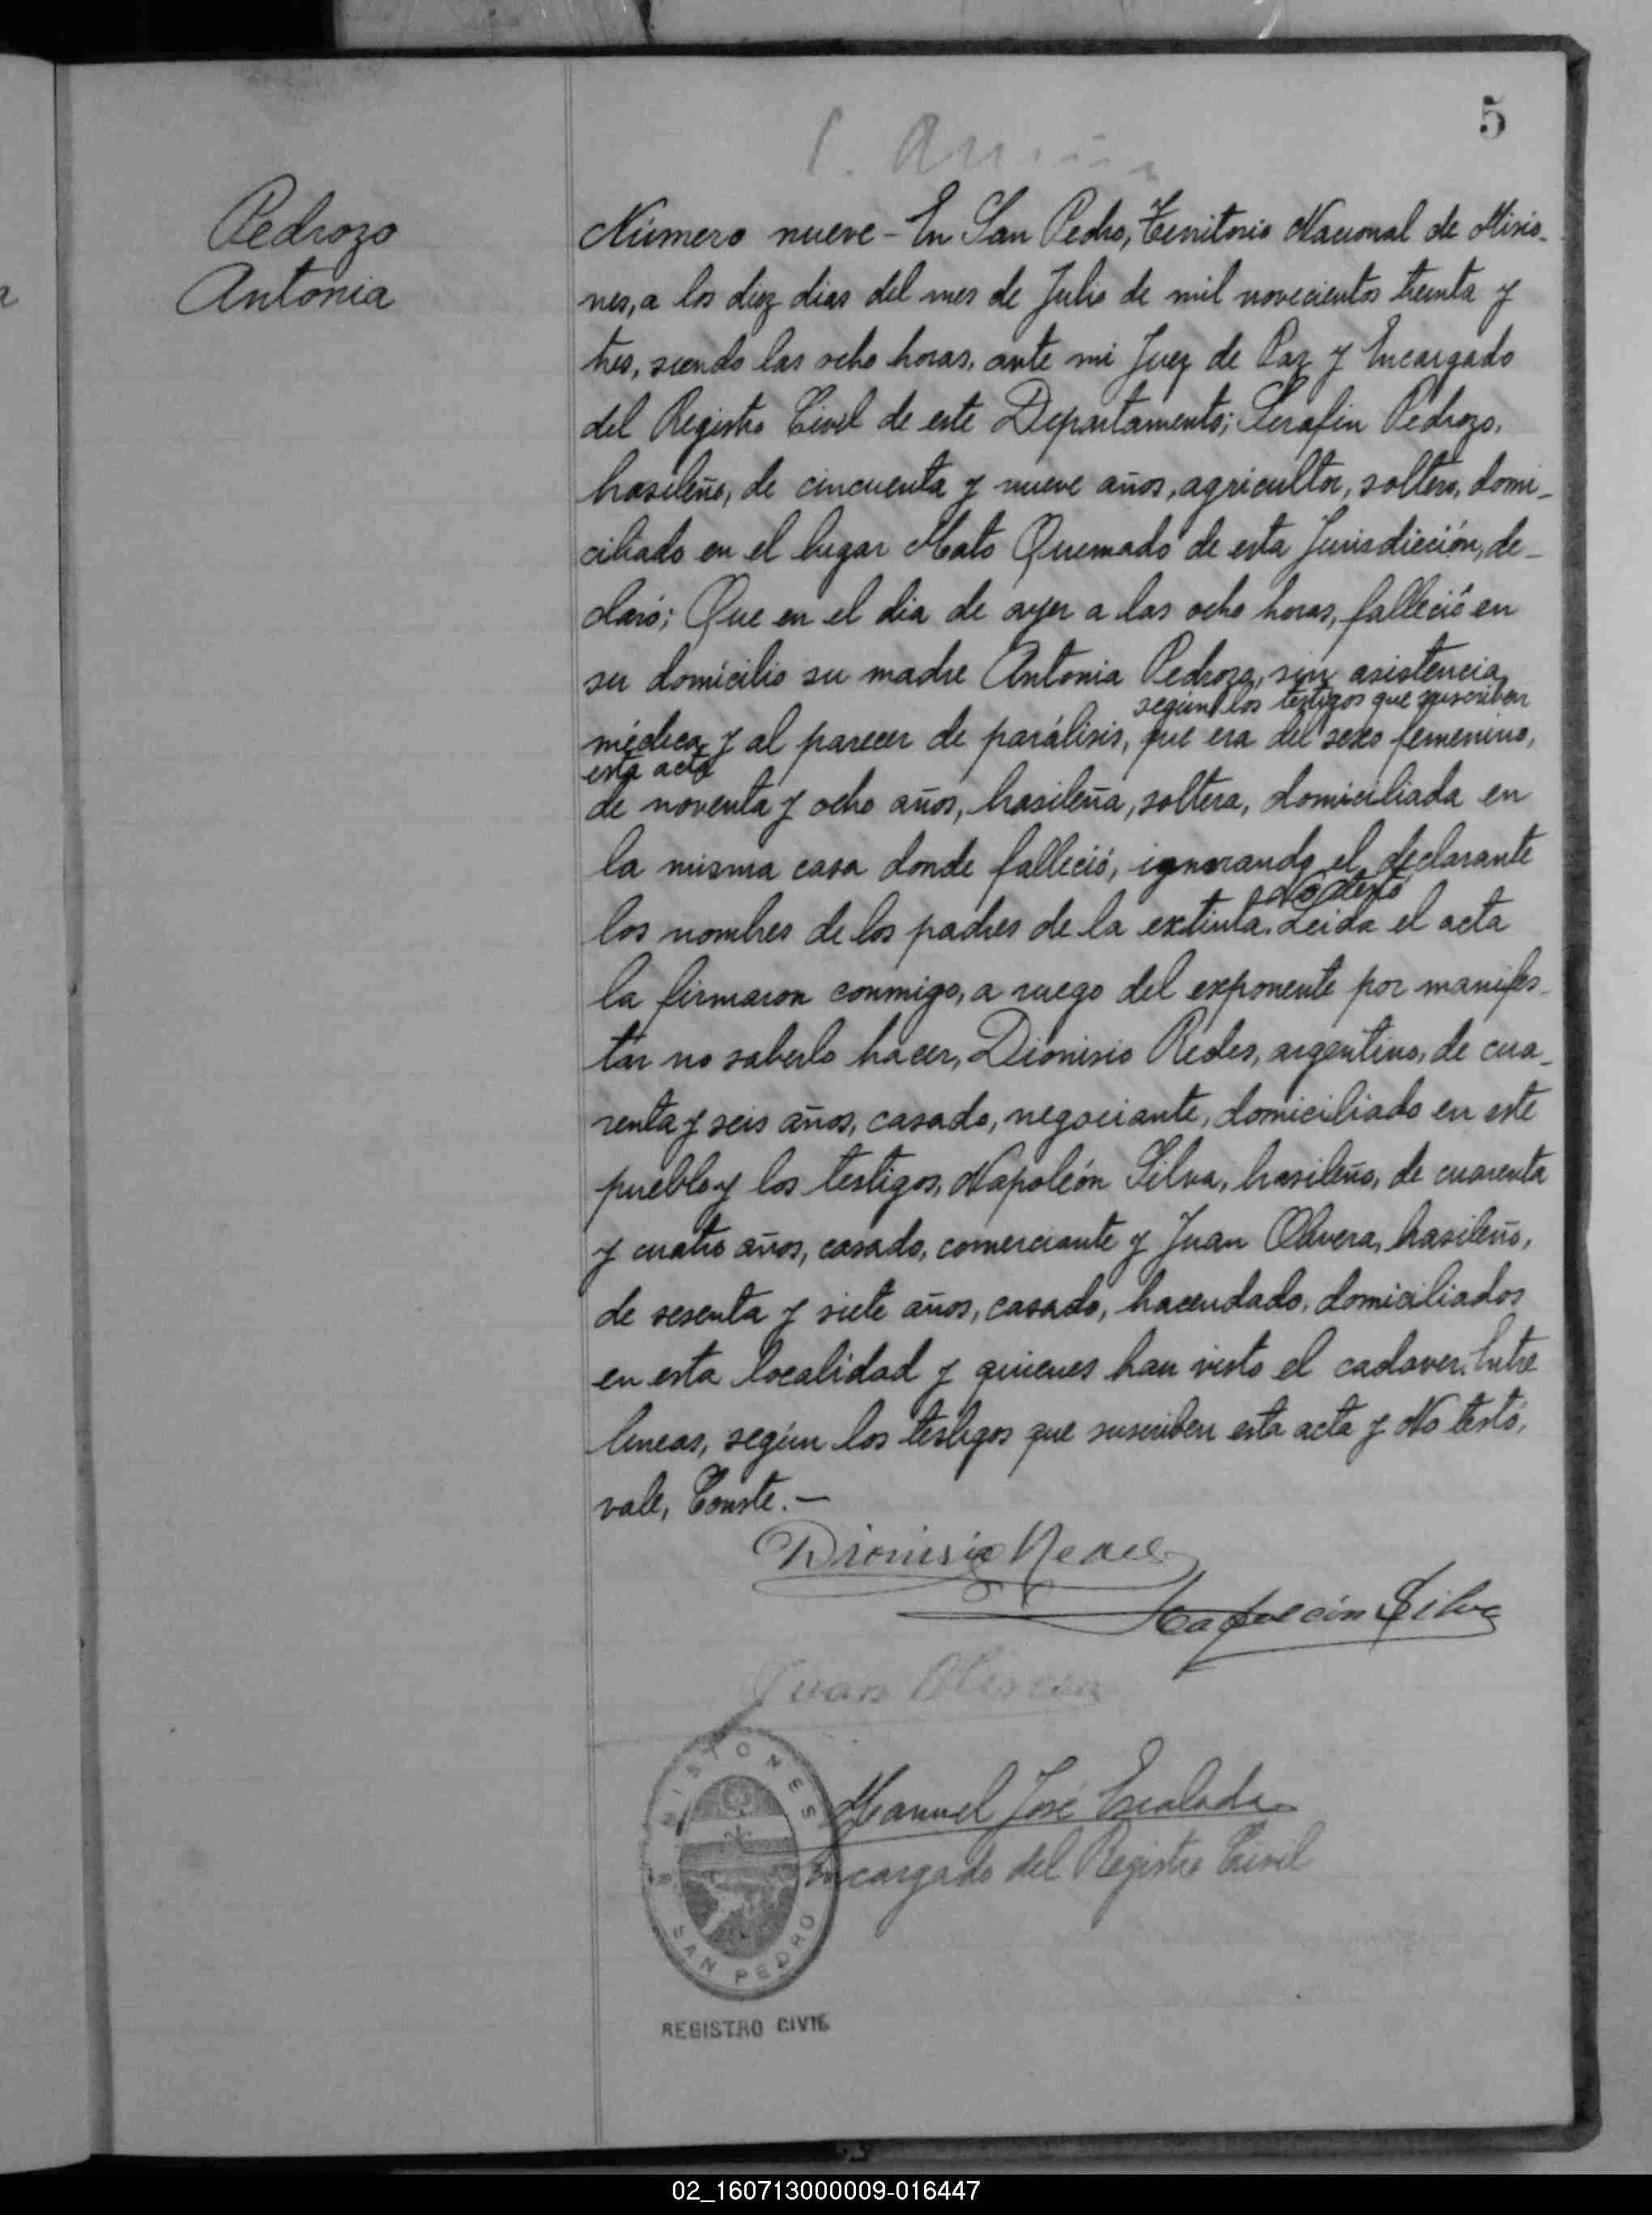 5
Pedrozo
Antonia
Número nueve - En San Pedro, Territorio Nacional de Misio-
nes, a los diez dias del mes de Julio de mil novecientos treinta y
tres, siendo las ocho horas, ante mi Juez de Paz y Encargado
del Registro Civil de este Departamento; Serafin Pedrozo,
brasileño, de cincuenta y nueve años, agricultor, soltero, domi-
ciliado en el lugar Mato Quemado de esta Jurisdicción, de-
claró: Que en el dia de ayer a las ocho horas, falleció en
su domicilio su madre Antonia Pedrozo, sin asistencia
según los testigos que suscriben
médica y al parecer de parálisis, que era del sexo femenino,
esta acta
de noventa y ocho años, brasileña, soltera, domiciliada en
la misma casa donde falleció, ignorando el declarante
No testó
los nombres de los padres de la extinta. Leida el acta
la firmaron conmigo, a ruego del exponente por manifes-
tar no saberlo hacer, Dionisio Redes, argentino, de cua-
renta y seis años, casado, negociante, domiciliado en este
pueblo y los testigos, Napoleón Silva, brasileño, de cuarenta
y cuatro años, casado, comerciante y Juan Olivera, brasileño,
de sesenta y siete años, casado, hacendado, domiciliados
en esta localidad y quienes han visto el cadaver. Entre
lineas, según los testigos que suscriben esta acta y No testó,
vale, Conste. -
Dionisio Redes
Napoleón Silva
Juan Olivera
MISIONES
SAN PEDRO
Manuel José Escalada
Encargado del Registro Civil
REGISTRO CIVIL
02_160713000009-016447